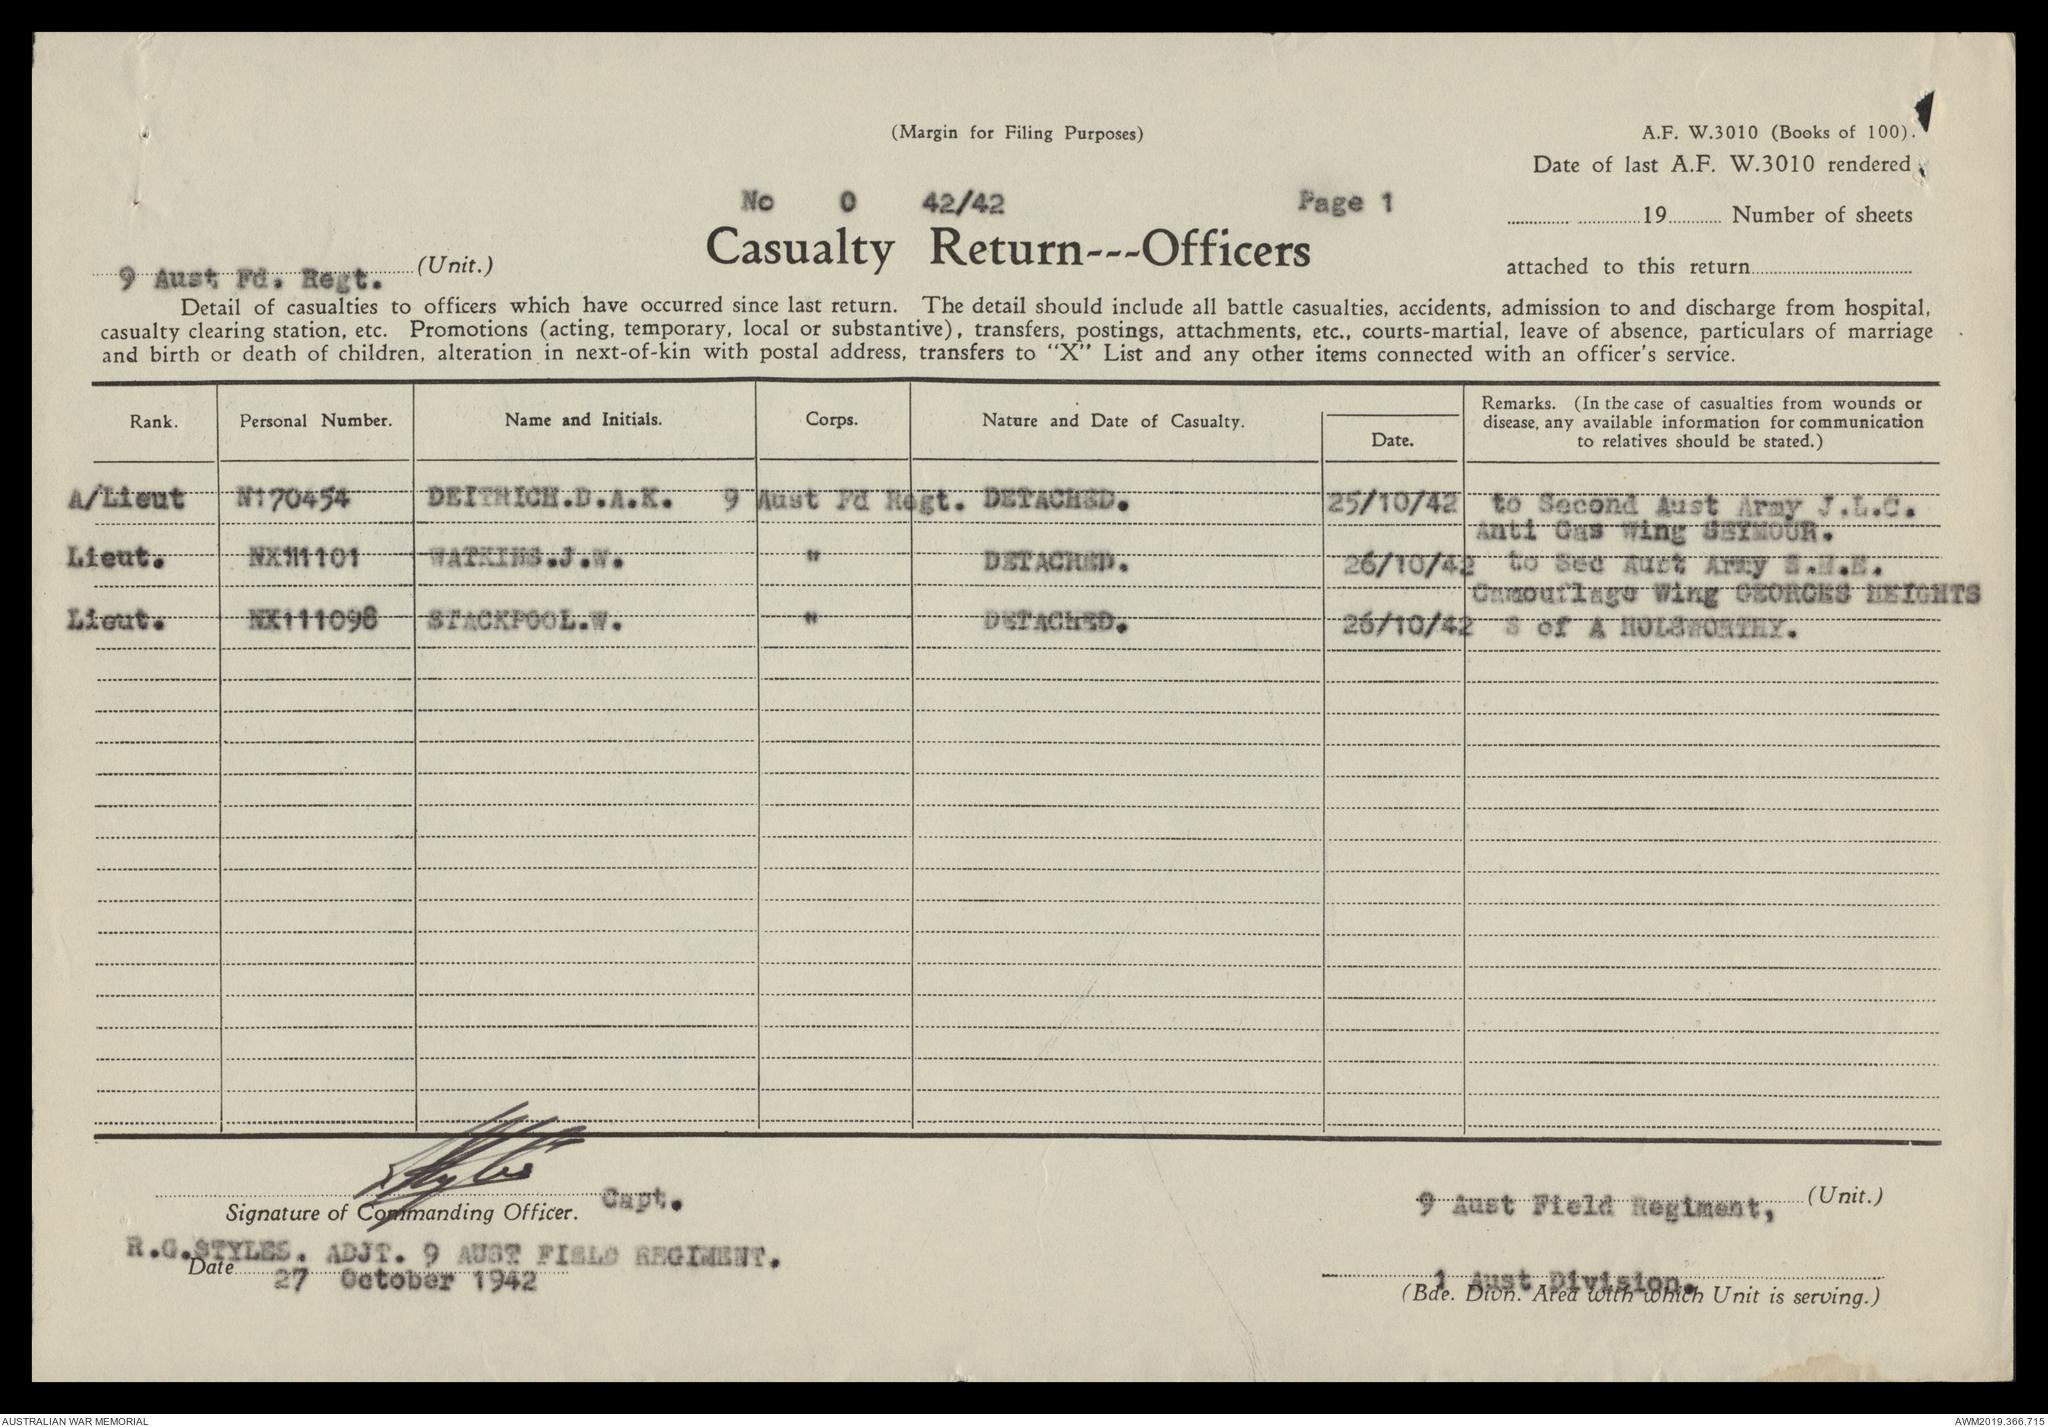 (Margin for Filing Purposes)
A.F. W.3010 (Books of 100).
Date of last A.F. W.3010 rendered
No 0 42/42 Page 1
19 Number of sheets
Casualty Return---Officers
9 Aust Fd. Regt. (Unit.)
attached to this return
Detail of casualties to officers which have occurred since last return. The detail should include all battle casualties, accidents, admission to and discharge from hospital,
casualty clearing station, etc. Promotions (acting, temporary, local or substantive), transfers, postings, attachments, etc., courts-martial, leave of absence, particulars of marriage
and birth or death of children, alteration in next-of-kin with postal address, transfers to "X" List and any other items connected with an officer's service.
Rank. Personal Number. Name and Initials. Corps. Nature and Date of Casualty. Date. Remarks. (In the case of casualties from wounds or
disease, any available information for communication
to relatives should be stated.)
A/Lieut N170454 DEITRICH.D.A.K. 9 Aust Fd Regt. DETACHED. 25/10/42 to Second Aust Army J.L.C.
Anti Gas Wing SEYMOUR.
Lieut. NX111101 WATKINS.J.W. " DETACHED. 26/10/42 to Sec Aust Army S.M.E.
Camouflage Wing GEORGES HEIGHTS
Lieut. NX111098 STACKPOOL.W. " DETACHED. 26/10/42 S of A HOLSWORTHY.
Styles Capt.
Signature of Commanding Officer.
9 Aust Field Regiment, (Unit.)
R.G.STYLES. ADJT. 9 AUST FIELD REGIMENT.
Date 27 October 1942
1 Aust Division.
(Bde. Divn. Area with which Unit is serving.)
AUSTRALIAN WAR MEMORIAL
AWM2019.366.715